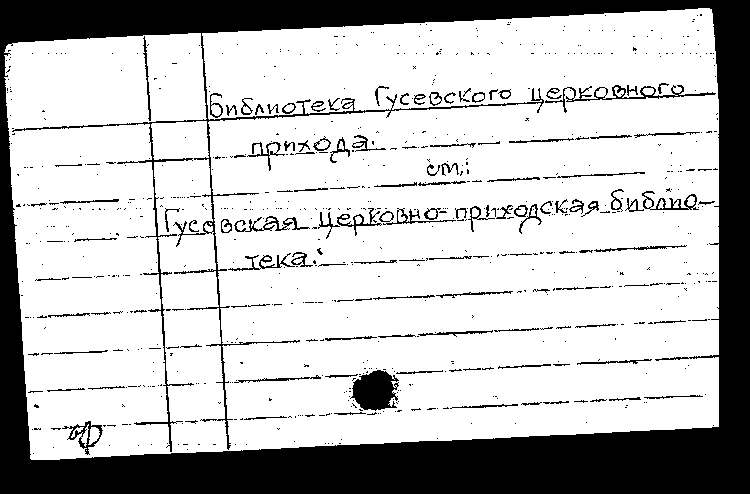 Библиотека Гусевского церковного
прихода.
см.:
Гусевская церковно-приходская библио-
тека.